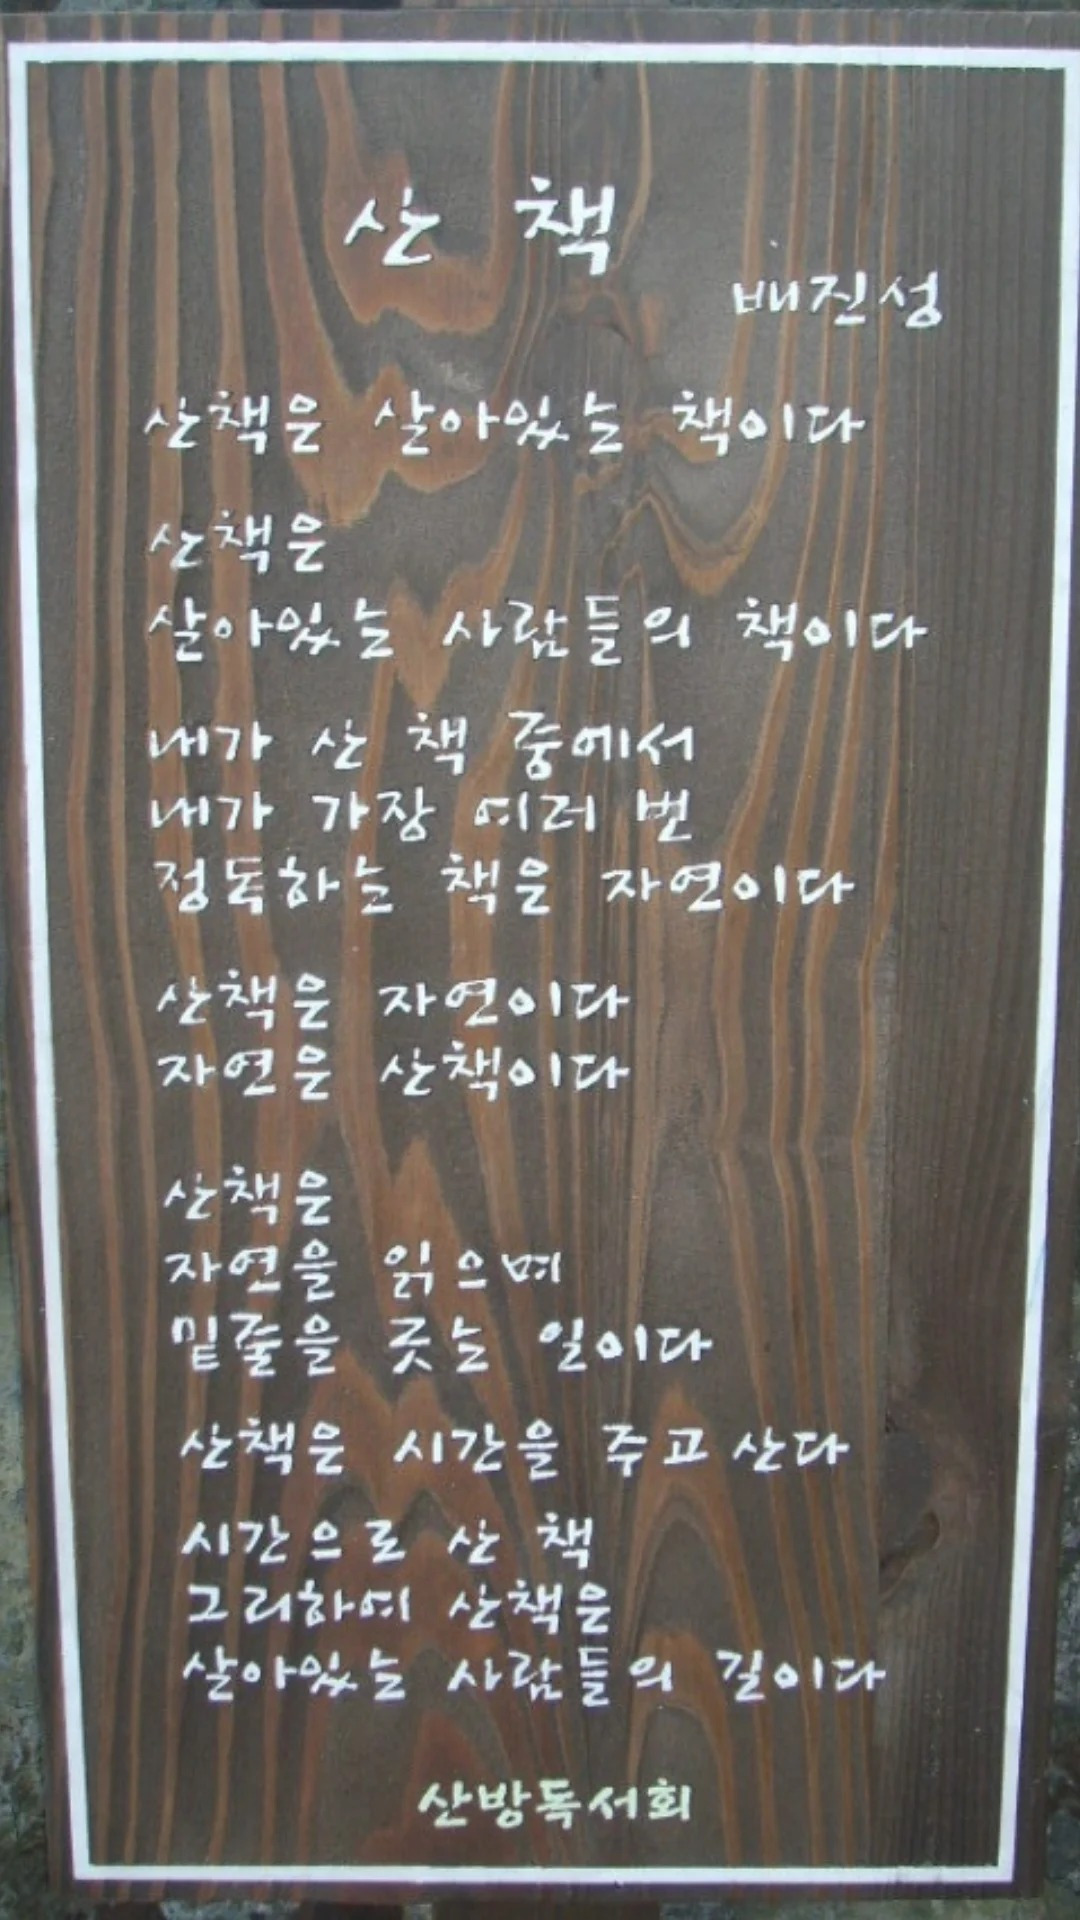 산 책
배진성
산책은 살아있는 책이다
산책은
살아있는 사람들의 책이다
내가 산 책 중에서
내가 가장 여러 번
정독하는 책은 자연이다
산책은 자연이다
자연은 산책이다
산책은
자연을 읽으며
밑줄을 긋는 일이다
산책은 시간을 주고 산다
시간으로 산 책
그리하여 산책은
살아있는 사람들의 길이다
산방독서회